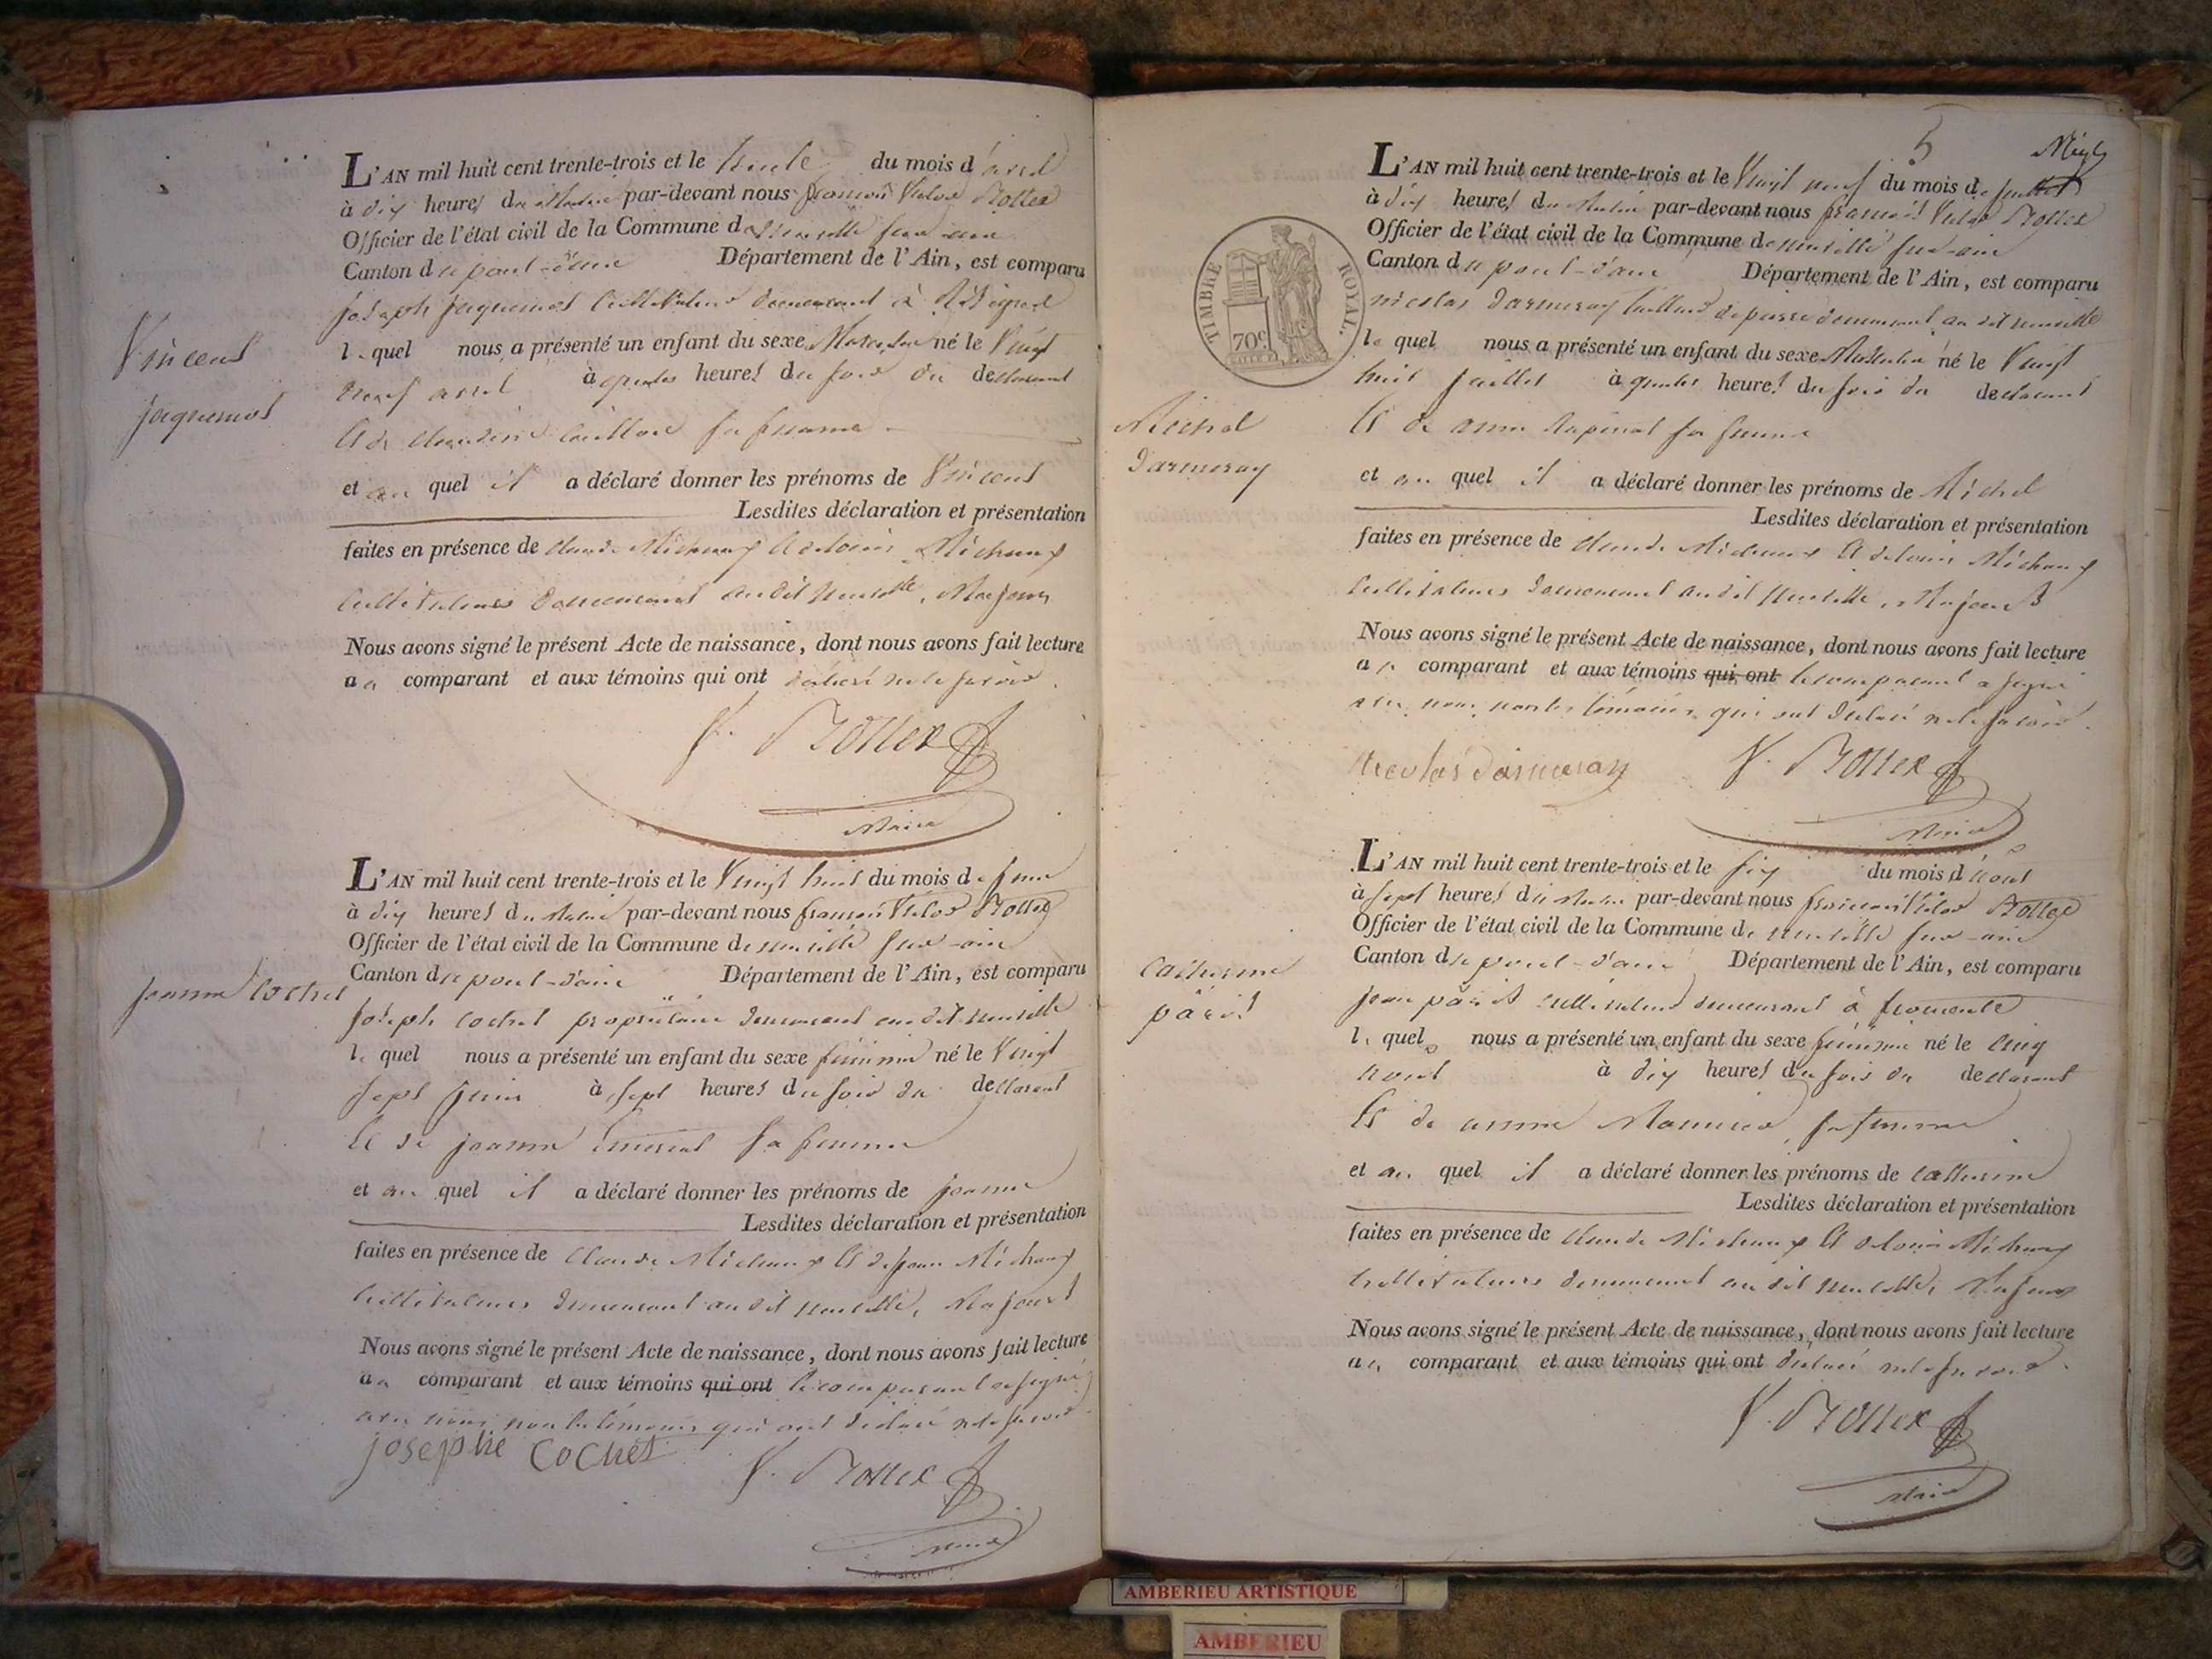 L'AN mil huit cent trente-trois et le trente du mois d'avril
à dix heures du Matin par-devant nous françois Victor Bottex
Officier de l'état civil de la Commune de neuville sur ain
Canton du pont-d'ain Département de l'Ain, est comparu
Joseph Jaquemot Cultivateur demeurant à
Vincent
Jaquemot
lequel nous a présenté un enfant du sexe Masculin né le Vingt
neuf avril à quatre heures du soir du declarant
Et de claudine sa femme
et au quel il a déclaré donner les prénoms de Vincent
Lesdites déclaration et présentation
faites en présence de claude Michaux Et de louis Michaux
Cultivateurs demeurant audit Neuville, Majeurs
Nous avons signé le présent Acte de naissance, dont nous avons fait lecture
au comparant et aux témoins qui ont déclaré ne le savoir.
V. Bottex
Maire
L'AN mil huit cent trente-trois et le Vingt huit du mois de juin
à dix heures du Matin par-devant nous françois Victor Bottex
Officier de l'état civil de la Commune de neuville sur-ain
Canton du pont-d'ain Département de l'Ain, est comparu
jeanne Cochet
Joseph Cochet propriétaire demeurant audit neuville
lequel nous a présenté un enfant du sexe féminin né le Vingt
sept juin à sept heures du soir du declarant
Et de jeanne sa femme
et au quel il a déclaré donner les prénoms de jeanne
Lesdites déclaration et présentation
faites en présence de Claude Michaux Et de jean Michaux
Cultivateurs demeurant audit neuville, Majeurs
Nous avons signé le présent Acte de naissance, dont nous avons fait lecture
au comparant et aux témoins qui ont le comparant a signé
avec nous non les témoins qui ont déclaré ne le savoir
josephe Cochet
V. Bottex
Maire
5
L'AN mil huit cent trente-trois et le Vingt neuf du mois de juillet
à dix heures du Matin par-devant nous françois Victor Bottex
Officier de l'état civil de la Commune de neuville sur-ain
Canton du pont-d'ain Département de l'Ain, est comparu
TIMBRE ROYAL.
70c
nicolas darmeray tailleur de pierre demeurant au dit neuville
lequel nous a présenté un enfant du sexe Masculin né le Vingt
huit juillet à quatre heures du soir du declarant
Michel
darmeray
Et de anne sa femme
et au quel il a déclaré donner les prénoms de Michel
Lesdites déclaration et présentation
faites en présence de claude Michaux Et de louis Michaux
Cultivateurs demeurant audit Neuville, Majeurs
Nous avons signé le présent Acte de naissance, dont nous avons fait lecture
au comparant et aux témoins qui ont le comparant a signé
avec nous non les témoins qui ont déclaré ne le savoir.
nicolas darmeray
V. Bottex
Maire
L'AN mil huit cent trente-trois et le six du mois d'aout
à sept heures du Matin par-devant nous françois Victor Bottex
Officier de l'état civil de la Commune de neuville sur-ain
Canton du pont-d'ain Département de l'Ain, est comparu
Catherine
pâris
jean pâris cultivateur demeurant à fromente
lequel nous a présenté un enfant du sexe féminin né le Cinq
aout à dix heures du soir du declarant
Et de anne sa femme
et au quel il a déclaré donner les prénoms de catherine
Lesdites déclaration et présentation
faites en présence de claude Michaux Et de louis Michaux
Cultivateurs demeurant au dit neuville, Majeurs
Nous avons signé le présent Acte de naissance, dont nous avons fait lecture
au comparant et aux témoins qui ont déclaré ne le savoir.
V. Bottex
Maire
AMBERIEU ARTISTIQUE
AMBERIEU